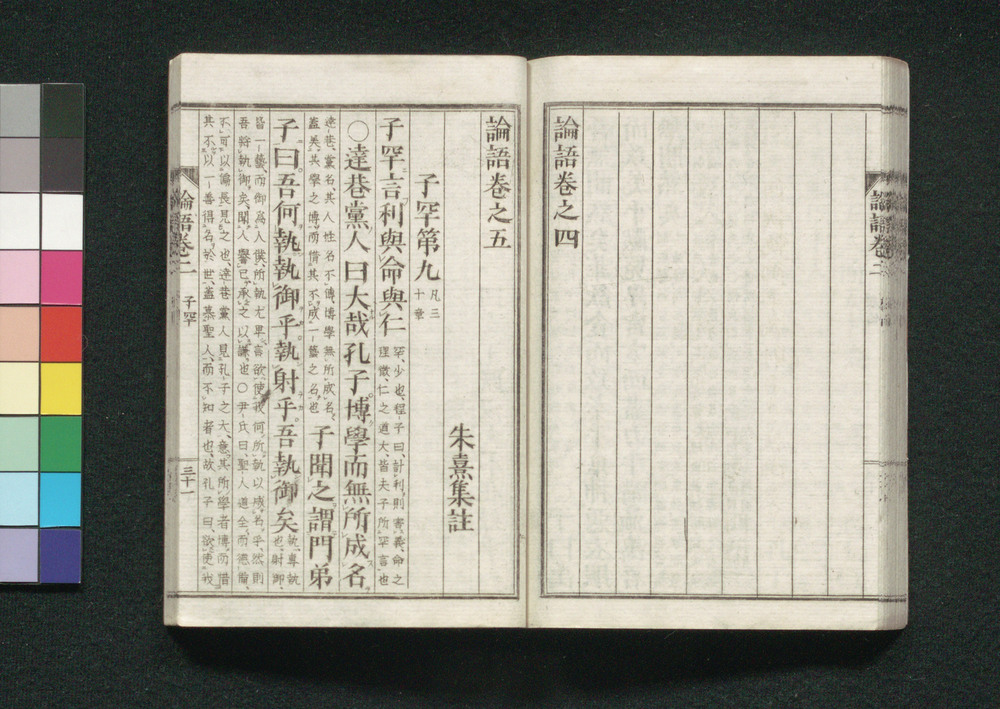 論語卷之四
論語卷二
論語卷之五
朱熹集註
子罕第九 凡三十章
子罕言利與命與仁 罕、少也、程子曰、計利、則害義、命之
理微、仁之道大、皆夫子所罕言也
○達巷黨人曰大哉孔子博學而無所成名
達巷、黨名、其人姓名不傳、博學無所成名、
蓋美其學之博、而惜其不成一藝之名也 子聞之謂門弟
子曰吾何執執御乎執射乎吾執御矣 執、專執
也、射御、
皆一藝、而御為人僕、所執尤卑、言欲使我何所執以成名乎、然則
吾將執御矣、聞人譽己、承之以謙也○尹氏曰、聖人道全、而德備、
不可以偏長見之也、達巷黨人見孔子之大、意其所學者博、而惜
其不以一善得名於世、蓋慕聖人、而不知者也、故孔子曰、欲使我
論語卷二 子罕 三十一